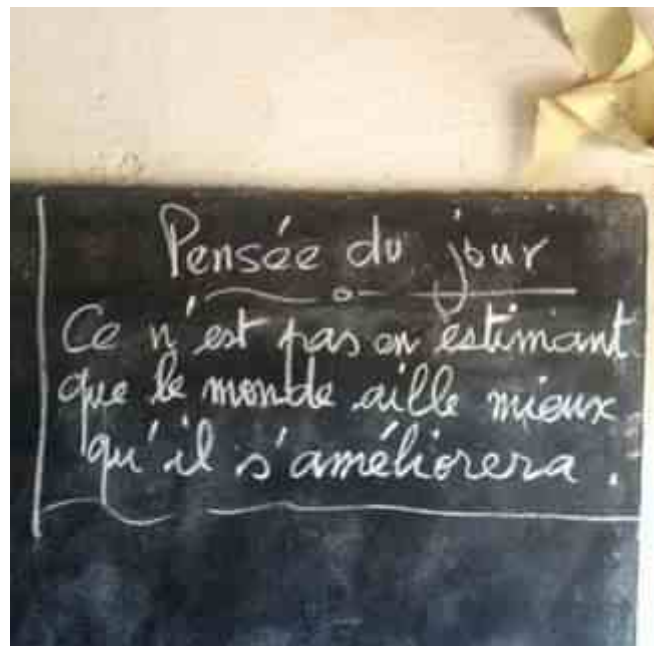 Pensée du jour
Ce n'est pas en estimant
que le monde aille mieux
qu'il s'améliorera.